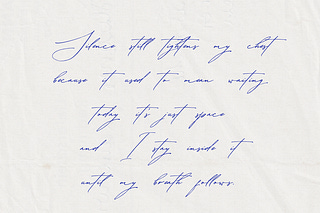 Silence still tightens my chest
because it used to mean waiting
today it's just space
and I stay inside it
until my breath follows.